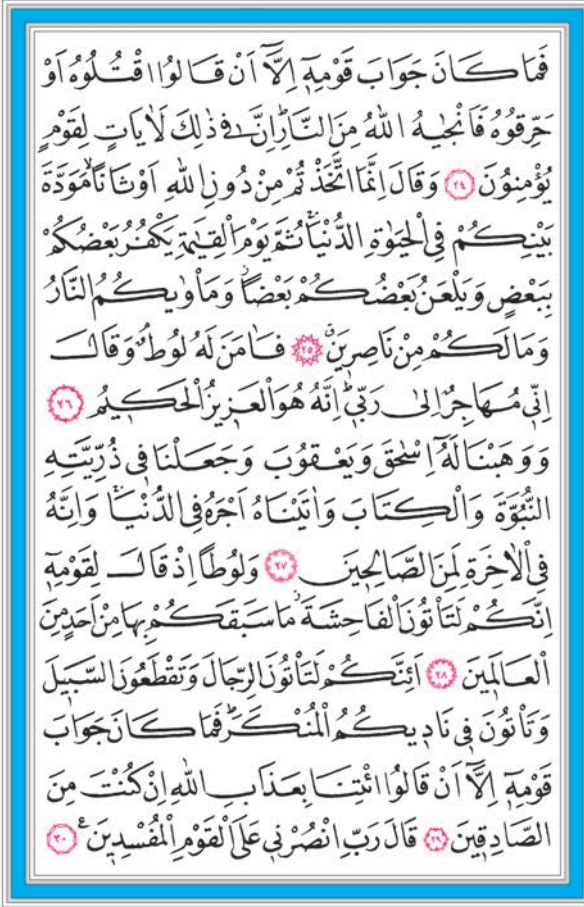 فَمَا كَانَ جَوَابَ قَوْمِهٖٓ اِلَّٓا اَنْ قَالُوا اقْتُلُوهُ اَوْ
حَرِّقُوهُ فَاَنْجٰيهُ اللّٰهُ مِنَ النَّارِۜ اِنَّ فٖي ذٰلِكَ لَاٰيَاتٍ لِقَوْمٍ
يُؤْمِنُونَ ﴿٢٤﴾ وَقَالَ اِنَّمَا اتَّخَذْتُمْ مِنْ دُونِ اللّٰهِ اَوْثَانًاۙ مَوَدَّةَ
بَيْنِكُمْ فِي الْحَيٰوةِ الدُّنْيَاۚ ثُمَّ يَوْمَ الْقِيٰمَةِ يَكْفُرُ بَعْضُكُمْ
بِبَعْضٍ وَيَلْعَنُ بَعْضُكُمْ بَعْضًاۘ وَمَاْوٰيكُمُ النَّارُ
وَمَا لَكُمْ مِنْ نَاصِرٖينَۗ ﴿٢٥﴾ فَاٰمَنَ لَهُ لُوطٌۢ وَقَالَ
اِنّٖي مُهَاجِرٌ اِلٰى رَبّٖيۜ اِنَّهُ هُوَ الْعَزٖيزُ الْحَكٖيمُ ﴿٢٦﴾
وَوَهَبْنَا لَهُٓ اِسْحٰقَ وَيَعْقُوبَ وَجَعَلْنَا فٖي ذُرِّيَّتِهِ
النُّبُوَّةَ وَالْكِتَابَ وَاٰتَيْنَاهُ اَجْرَهُ فِي الدُّنْيَاۚ وَاِنَّهُ
فِي الْاٰخِرَةِ لَمِنَ الصَّالِحٖينَ ﴿٢٧﴾ وَلُوطًا اِذْ قَالَ لِقَوْمِهٖٓ
اِنَّكُمْ لَتَاْتُونَ الْفَاحِشَةَۘ مَا سَبَقَكُمْ بِهَا مِنْ اَحَدٍ مِنَ
الْعَالَمٖينَ ﴿٢٨﴾ اَئِنَّكُمْ لَتَاْتُونَ الرِّجَالَ وَتَقْطَعُونَ السَّبٖيلَ
وَتَاْتُونَ فٖي نَادٖيكُمُ الْمُنْكَرَۜ فَمَا كَانَ جَوَابَ
قَوْمِهٖٓ اِلَّٓا اَنْ قَالُوا ائْتِنَا بِعَذَابِ اللّٰهِ اِنْ كُنْتَ مِنَ
الصَّادِقٖينَ ﴿٢٩﴾ قَالَ رَبِّ انْصُرْنٖي عَلَى الْقَوْمِ الْمُفْسِدٖينَ ع ﴿٣٠﴾